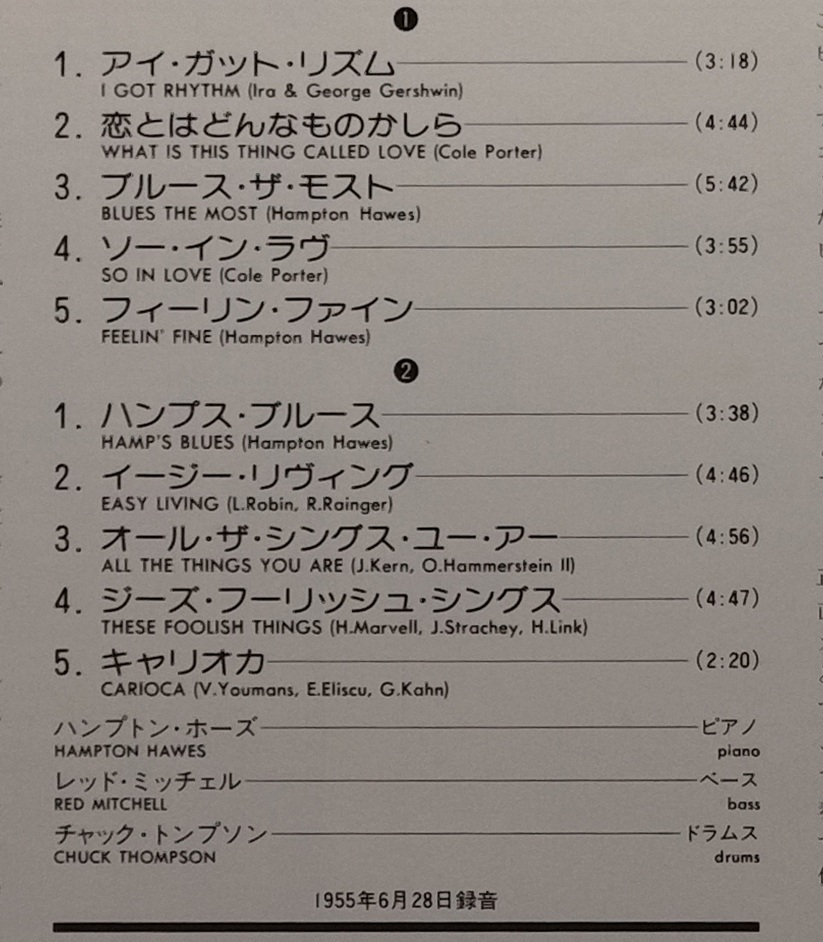 ❶
1. アイ・ガット・リズム (3:18)
I GOT RHYTHM (Ira & George Gershwin)
2. 恋とはどんなものかしら (4:44)
WHAT IS THIS THING CALLED LOVE (Cole Porter)
3. ブルース・ザ・モスト (5:42)
BLUES THE MOST (Hampton Hawes)
4. ソー・イン・ラヴ (3:55)
SO IN LOVE (Cole Porter)
5. フィーリン・ファイン (3:02)
FEELIN' FINE (Hampton Hawes)
❷
1. ハンプス・ブルース (3:38)
HAMP'S BLUES (Hampton Hawes)
2. イージー・リヴィング (4:46)
EASY LIVING (L.Robin, R.Rainger)
3. オール・ザ・シングス・ユー・アー (4:56)
ALL THE THINGS YOU ARE (J.Kern, O.Hammerstein II)
4. ジーズ・フーリッシュ・シングス (4:47)
THESE FOOLISH THINGS (H.Marvell, J.Strachey, H.Link)
5. キャリオカ (2:20)
CARIOCA (V.Youmans, E.Eliscu, G.Kahn)
ハンプトン・ホーズ ピアノ
HAMPTON HAWES piano
レッド・ミッチェル ベース
RED MITCHELL bass
チャック・トンプソン ドラムス
CHUCK THOMPSON drums
1955年6月28日録音